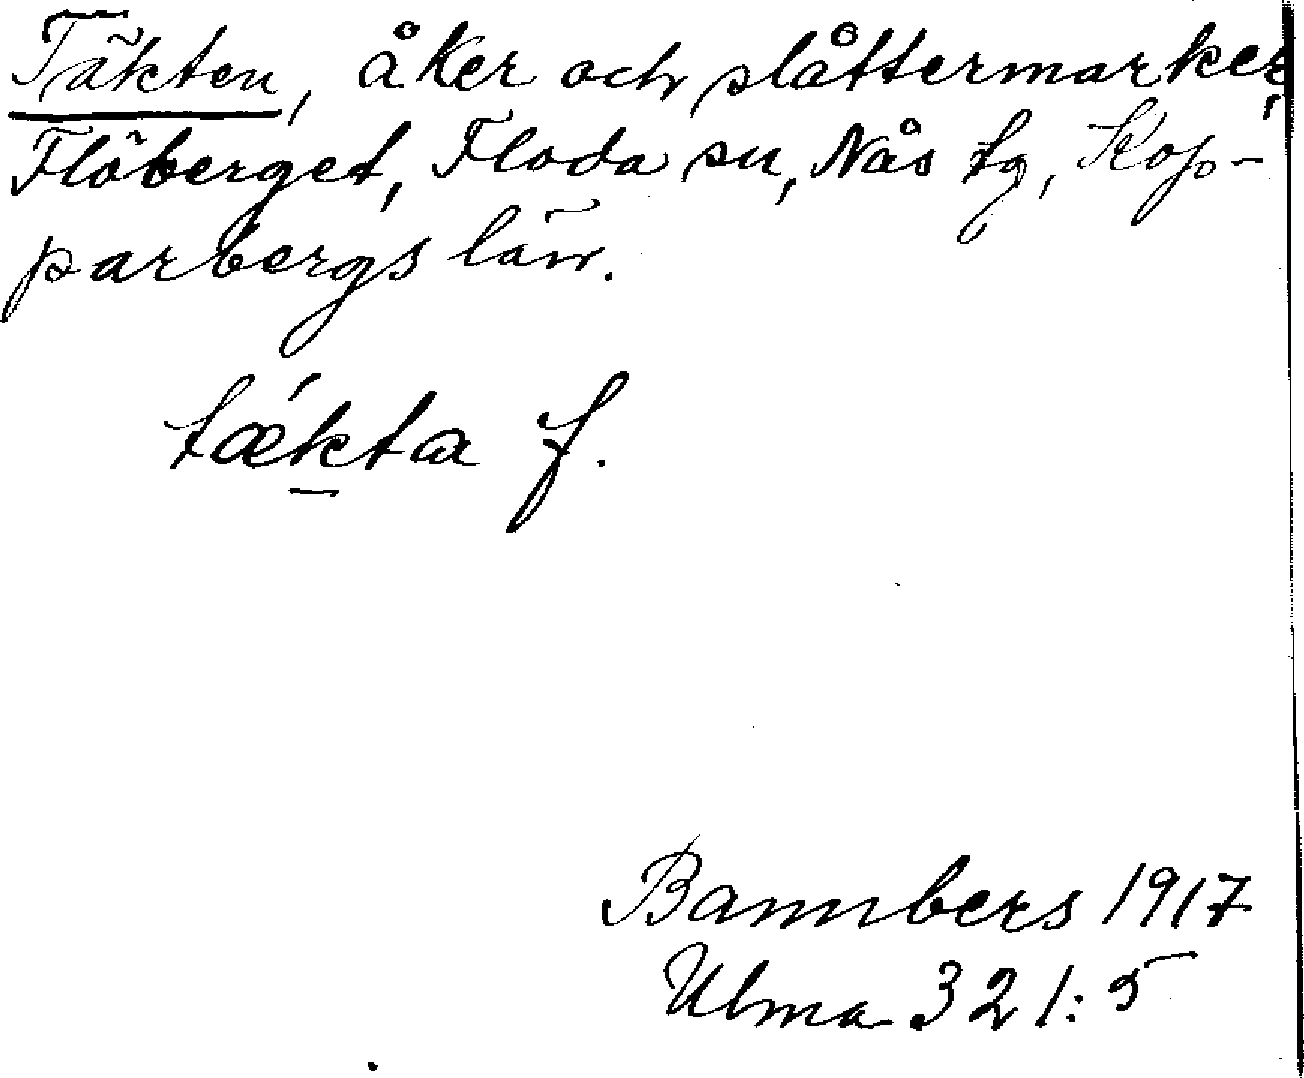 Täkten, åker och slåttermarker,
Flöberget, Floda sn, Nås tg, Kop-
parbergs län.
tǽkta f.
Bannbers 1917
Ulma 321:5